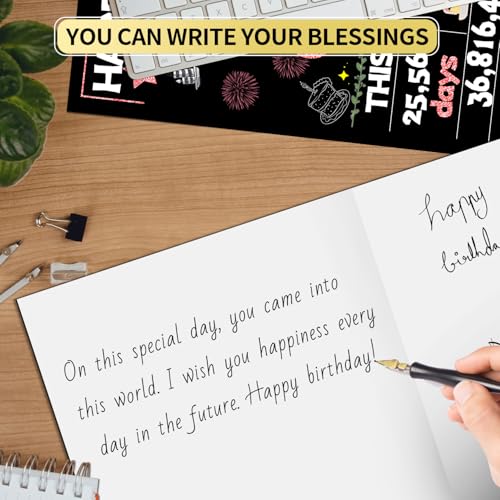 YOU CAN WRITE YOUR BLESSINGS
THIS
25,56
days
36,816,4
happy
birthda
On this special day, you came into
this world. I wish you happiness every
day in the future. Happy birthday!